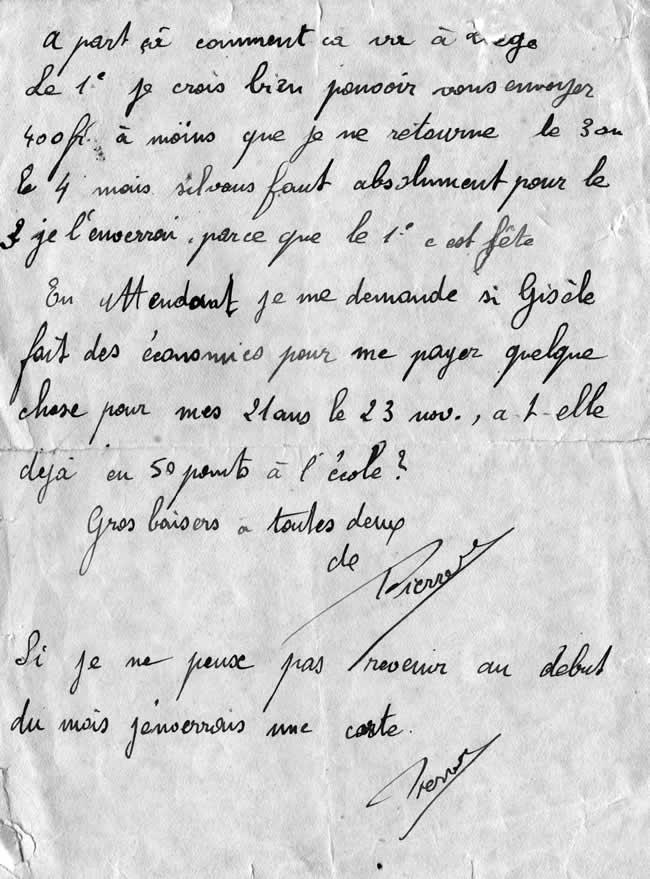 a part ça comment ca va à Liège
Le 1e je crois bien pouvoir vous envoyer
400fr. à moins que je ne retourne le 3 ou
le 4 mais s'il vous faut absolument pour le
3 je l'enverrai, parce que le 1e c'est fête
En Attendant je me demande si Gisèle
fait des économies pour me payer quelque
chose pour mes 21 ans le 23 nov., a-t-elle
déjà eu 50 points à l'école?
Gros baisers a toutes deux
de Pierrot
Si je ne peux pas revenir au début
du mois j'enverrais une carte.
Pierrot